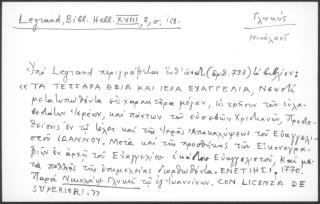 Legrand, Bibl. Hell. XVIII, 2, σ, 128.
Γλυκύς
Νικόλαος
Ὑπό Legrand περιγράφεται ὑπ' ἀριθ. (ἀριθ. 733) τό βιβλίον:
« ΤΑ ΤΕΣΣΑΡΑ ΘΕΙΑ ΚΑΙ ΙΕΡΑ ΕΥΑΓΓΕΛΙΑ, Νεωστί
μετατυπωθέντα εἰς χαρακτῆρα μέγαν, εἰς χρῆσιν τῶν εὐλα-
βεστάτων Ἱερέων, καί πάντων τῶν εὐσεβῶν Χριστιανῶν, Προστε-
θείσης ἐν τῷ τέλει καί τῆς Ἱερᾶς Ἀποκαλύψεως τοῦ Εὐαγγελι-
στοῦ ΙΩΑΝΝΟΥ. Μετά καί τῆς προσθήκης τῶν Εἰκονογραφι-
ῶν ἐν ἀρχῇ τοῦ Εὐαγγελίου ἑκάστου Εὐαγγελιστοῦ, Καί με-
τά πολλῆς τῆς ἐπιμελείας διορθωθέντα. ΕΝΕΤΙΗΣΙ. 1770.
Παρά Νικολάῳ Γλυκεῖ τῷ ἐξ Ἰωαννίνων. CON LICENZA DE
SUPERIORI. »